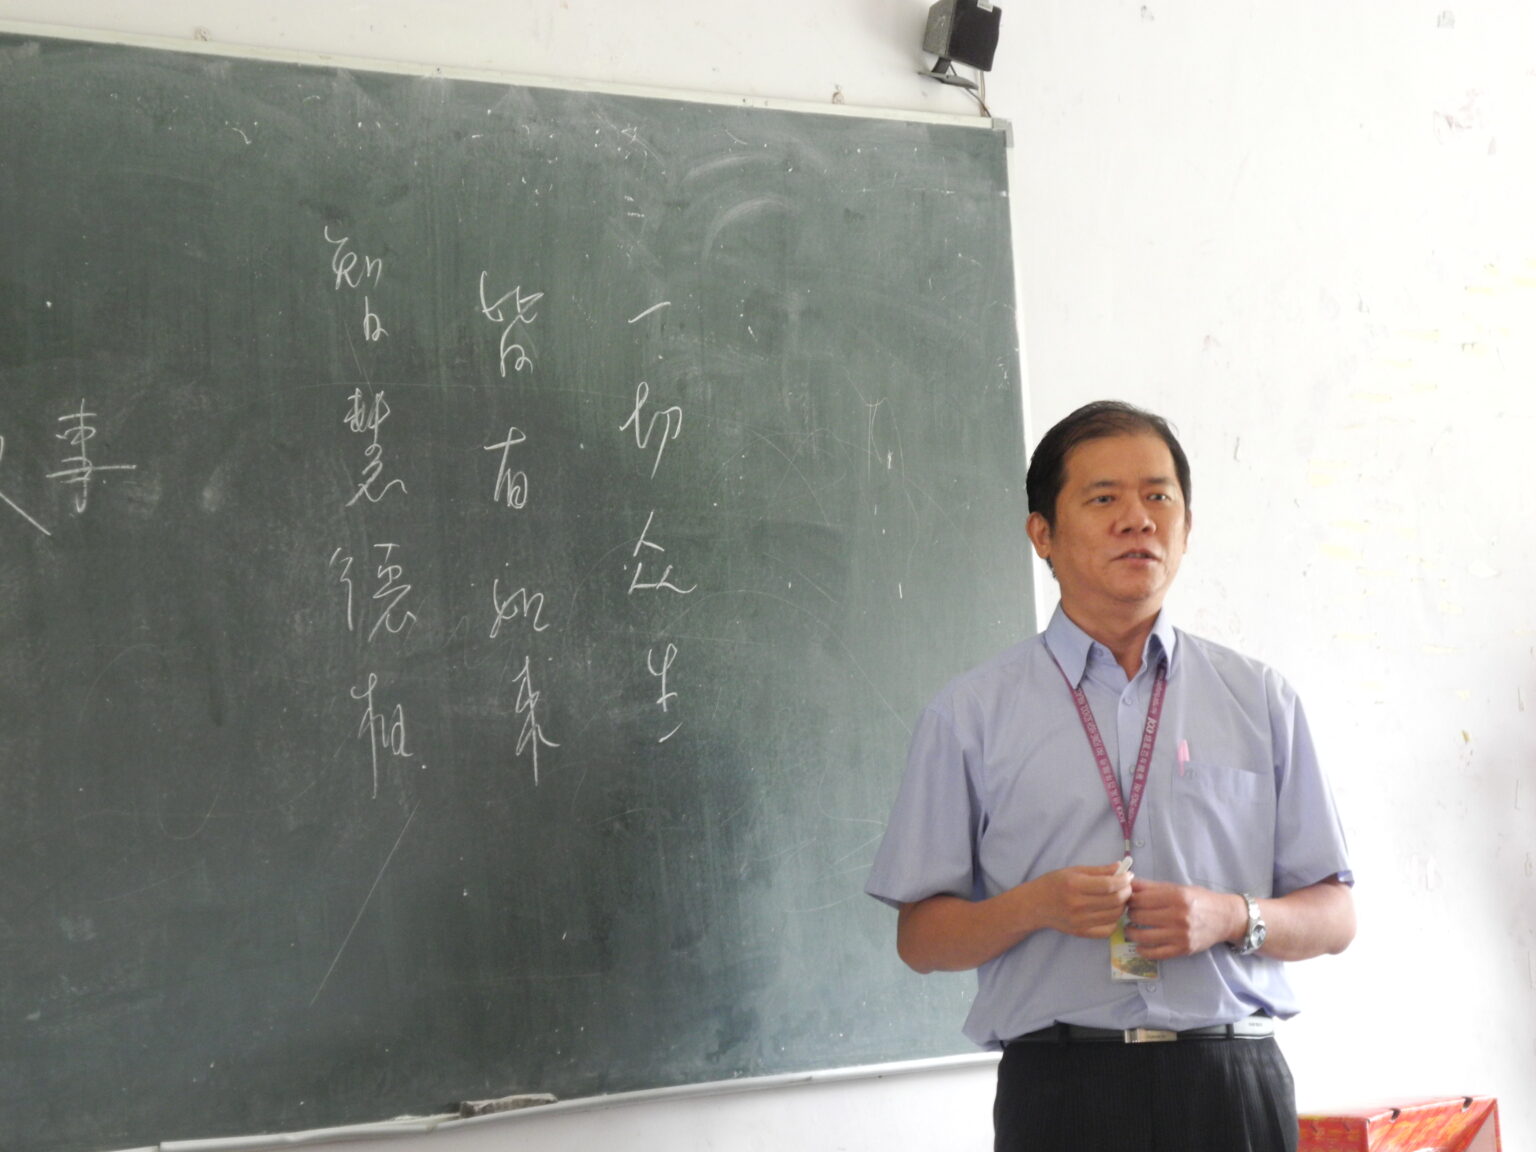 一切众生
皆有如来
智慧德相
事